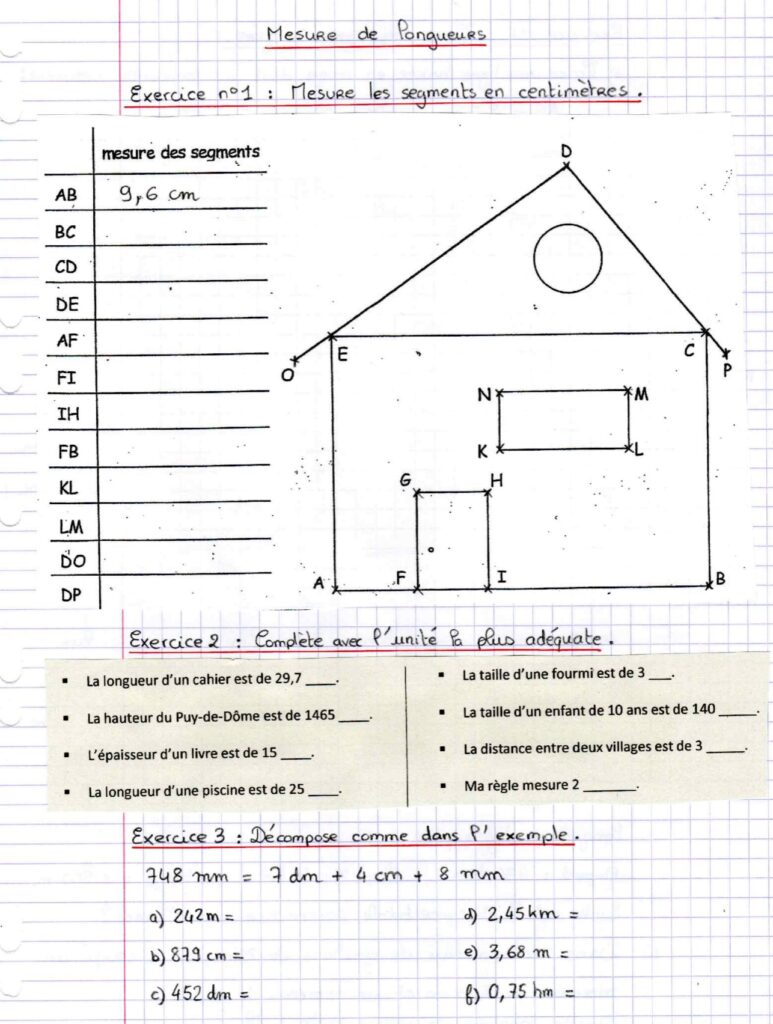 Mesure de longueurs
Exercice n°1 : Mesure les segments en centimètres.
mesure des segments
AB 9,6 cm
BC
CD
DE
AF
FI
IH
FB
KL
LM
DO
DP
D
E
C
O
P
N
M
K
L
G
H
A
F
I
B
Exercice 2 : Complète avec l'unité la plus adéquate.
▪ La longueur d'un cahier est de 29,7 ____.
▪ La hauteur du Puy-de-Dôme est de 1465 ____.
▪ L'épaisseur d'un livre est de 15 ____.
▪ La longueur d'une piscine est de 25 ____.
▪ La taille d'une fourmi est de 3 ___.
▪ La taille d'un enfant de 10 ans est de 140 _____.
▪ La distance entre deux villages est de 3 _____.
▪ Ma règle mesure 2 _______.
Exercice 3 : Décompose comme dans l'exemple.
748 mm = 7 dm + 4 cm + 8 mm
a) 242 m =
b) 879 cm =
c) 452 dm =
d) 2,45 km =
e) 3,68 m =
f) 0,75 hm =